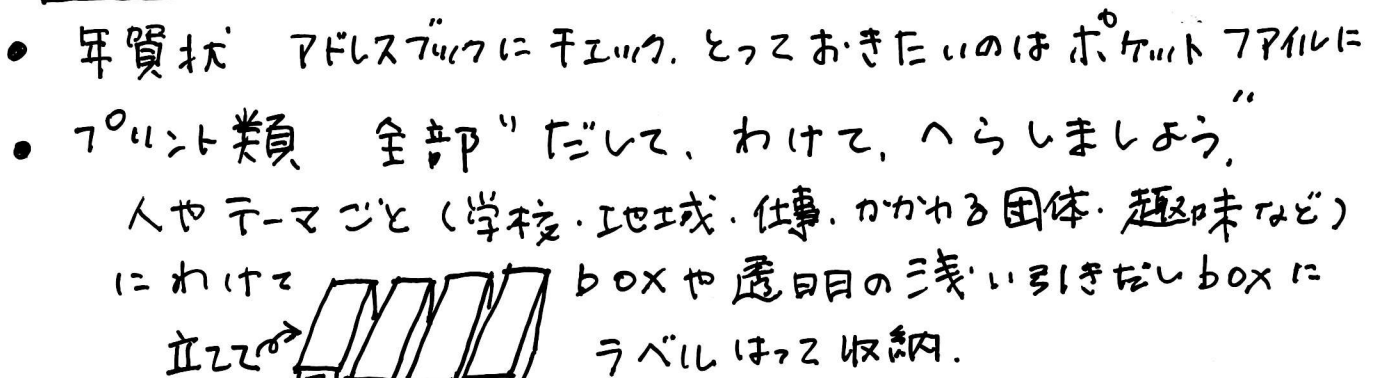 • 年賀状 アドレスブックにチェック. とっておきたいのはポケットファイルに
• プリント類 全部"だして、わけて、へらしましょう."
人やテーマごと(学校・地域・仕事・かかわる団体・趣味など)
にわけて boxや透明の浅い引きだしboxに
立てて ラベルはって収納.